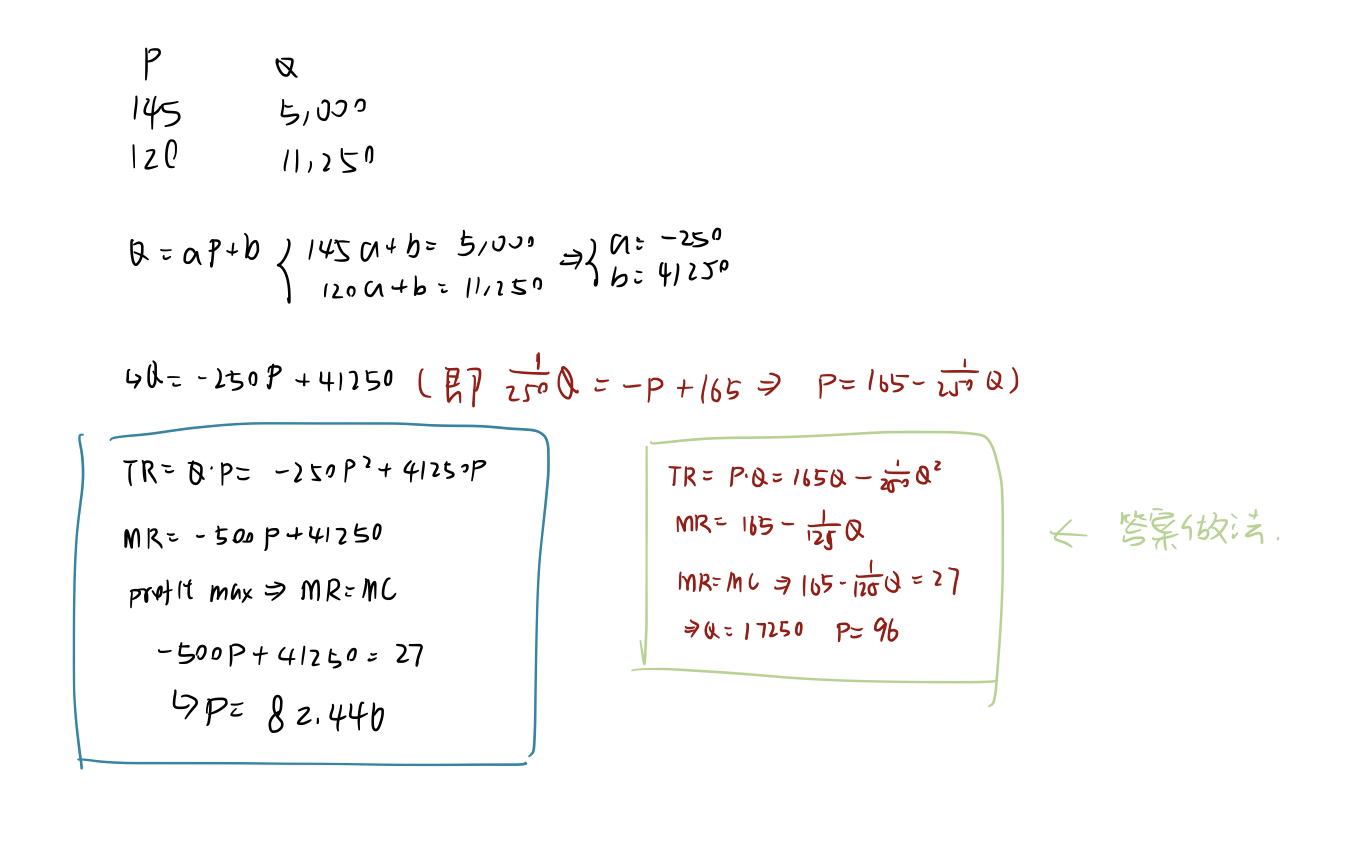 P Q
145 5,000
120 11,250
Q = aP+b { 145a+b = 5,000 ⇒ { a = -250
120a+b = 11,250 b = 41250
↳ Q = -250P + 41250 (即 1/250 Q = -P + 165 ⇒ P = 165 - 1/250 Q)
TR = Q·P = -250P² + 41250P
MR = -500P+41250
profit max ⇒ MR=MC
-500P + 41250 = 27
↳ P = 82.446
TR = P·Q = 165Q - 1/250 Q²
MR = 165 - 1/125 Q
MR=MC ⇒ 165 - 1/125 Q = 27
⇒ Q = 17250 P = 96
← 答案做法.